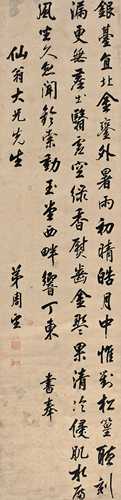 銀臺直北金鑾外暑雨初晴皓月中惟對松篁聽刻
漏更無塵土翳虛空綠香熨齒冰盤果清冷侵肌水殿
風坐久忽聞鈴索動玉堂西畔響丁東　書奉
仙翁大兄先生
弟周